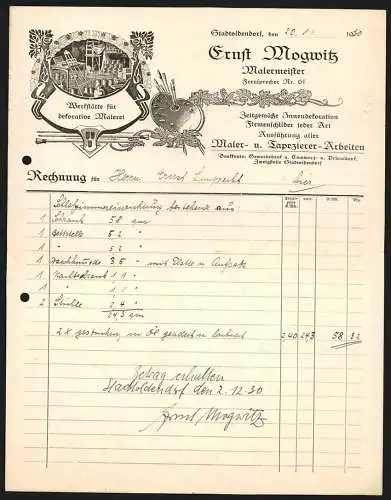 Stadtoldendorf, den 20. 11. 1930
Ernst Mogwitz
Malermeister
Fernsprecher Nr. 61
Werkstätte für
dekorative Malerei
Zeitgemäße Innendekoration
Firmenschilder jeder Art
Ausführung aller
Maler- u. Tapezierer-Arbeiten
Bankkonto: Commerz- u. Privatbank,
Zweigstelle Stadtoldendorf
Rechnung für Herrn Ernst hier
Schlafzimmereinrichtung bestehend aus
1 Schrank 58 qm
1 Bettstelle 52 "
1 " 52 "
1 Waschkomode 35 " mit Platte u. Aufsatz
1 Nachtschrank 11 "
1 " 11 "
2 Stühle 24 "
243 qm
2 x gestrichen, in Öl geadert u. lackiert 240 243 58 32
Betrag erhalten
Stadtoldendorf den 2.12.30
Ernst Mogwitz